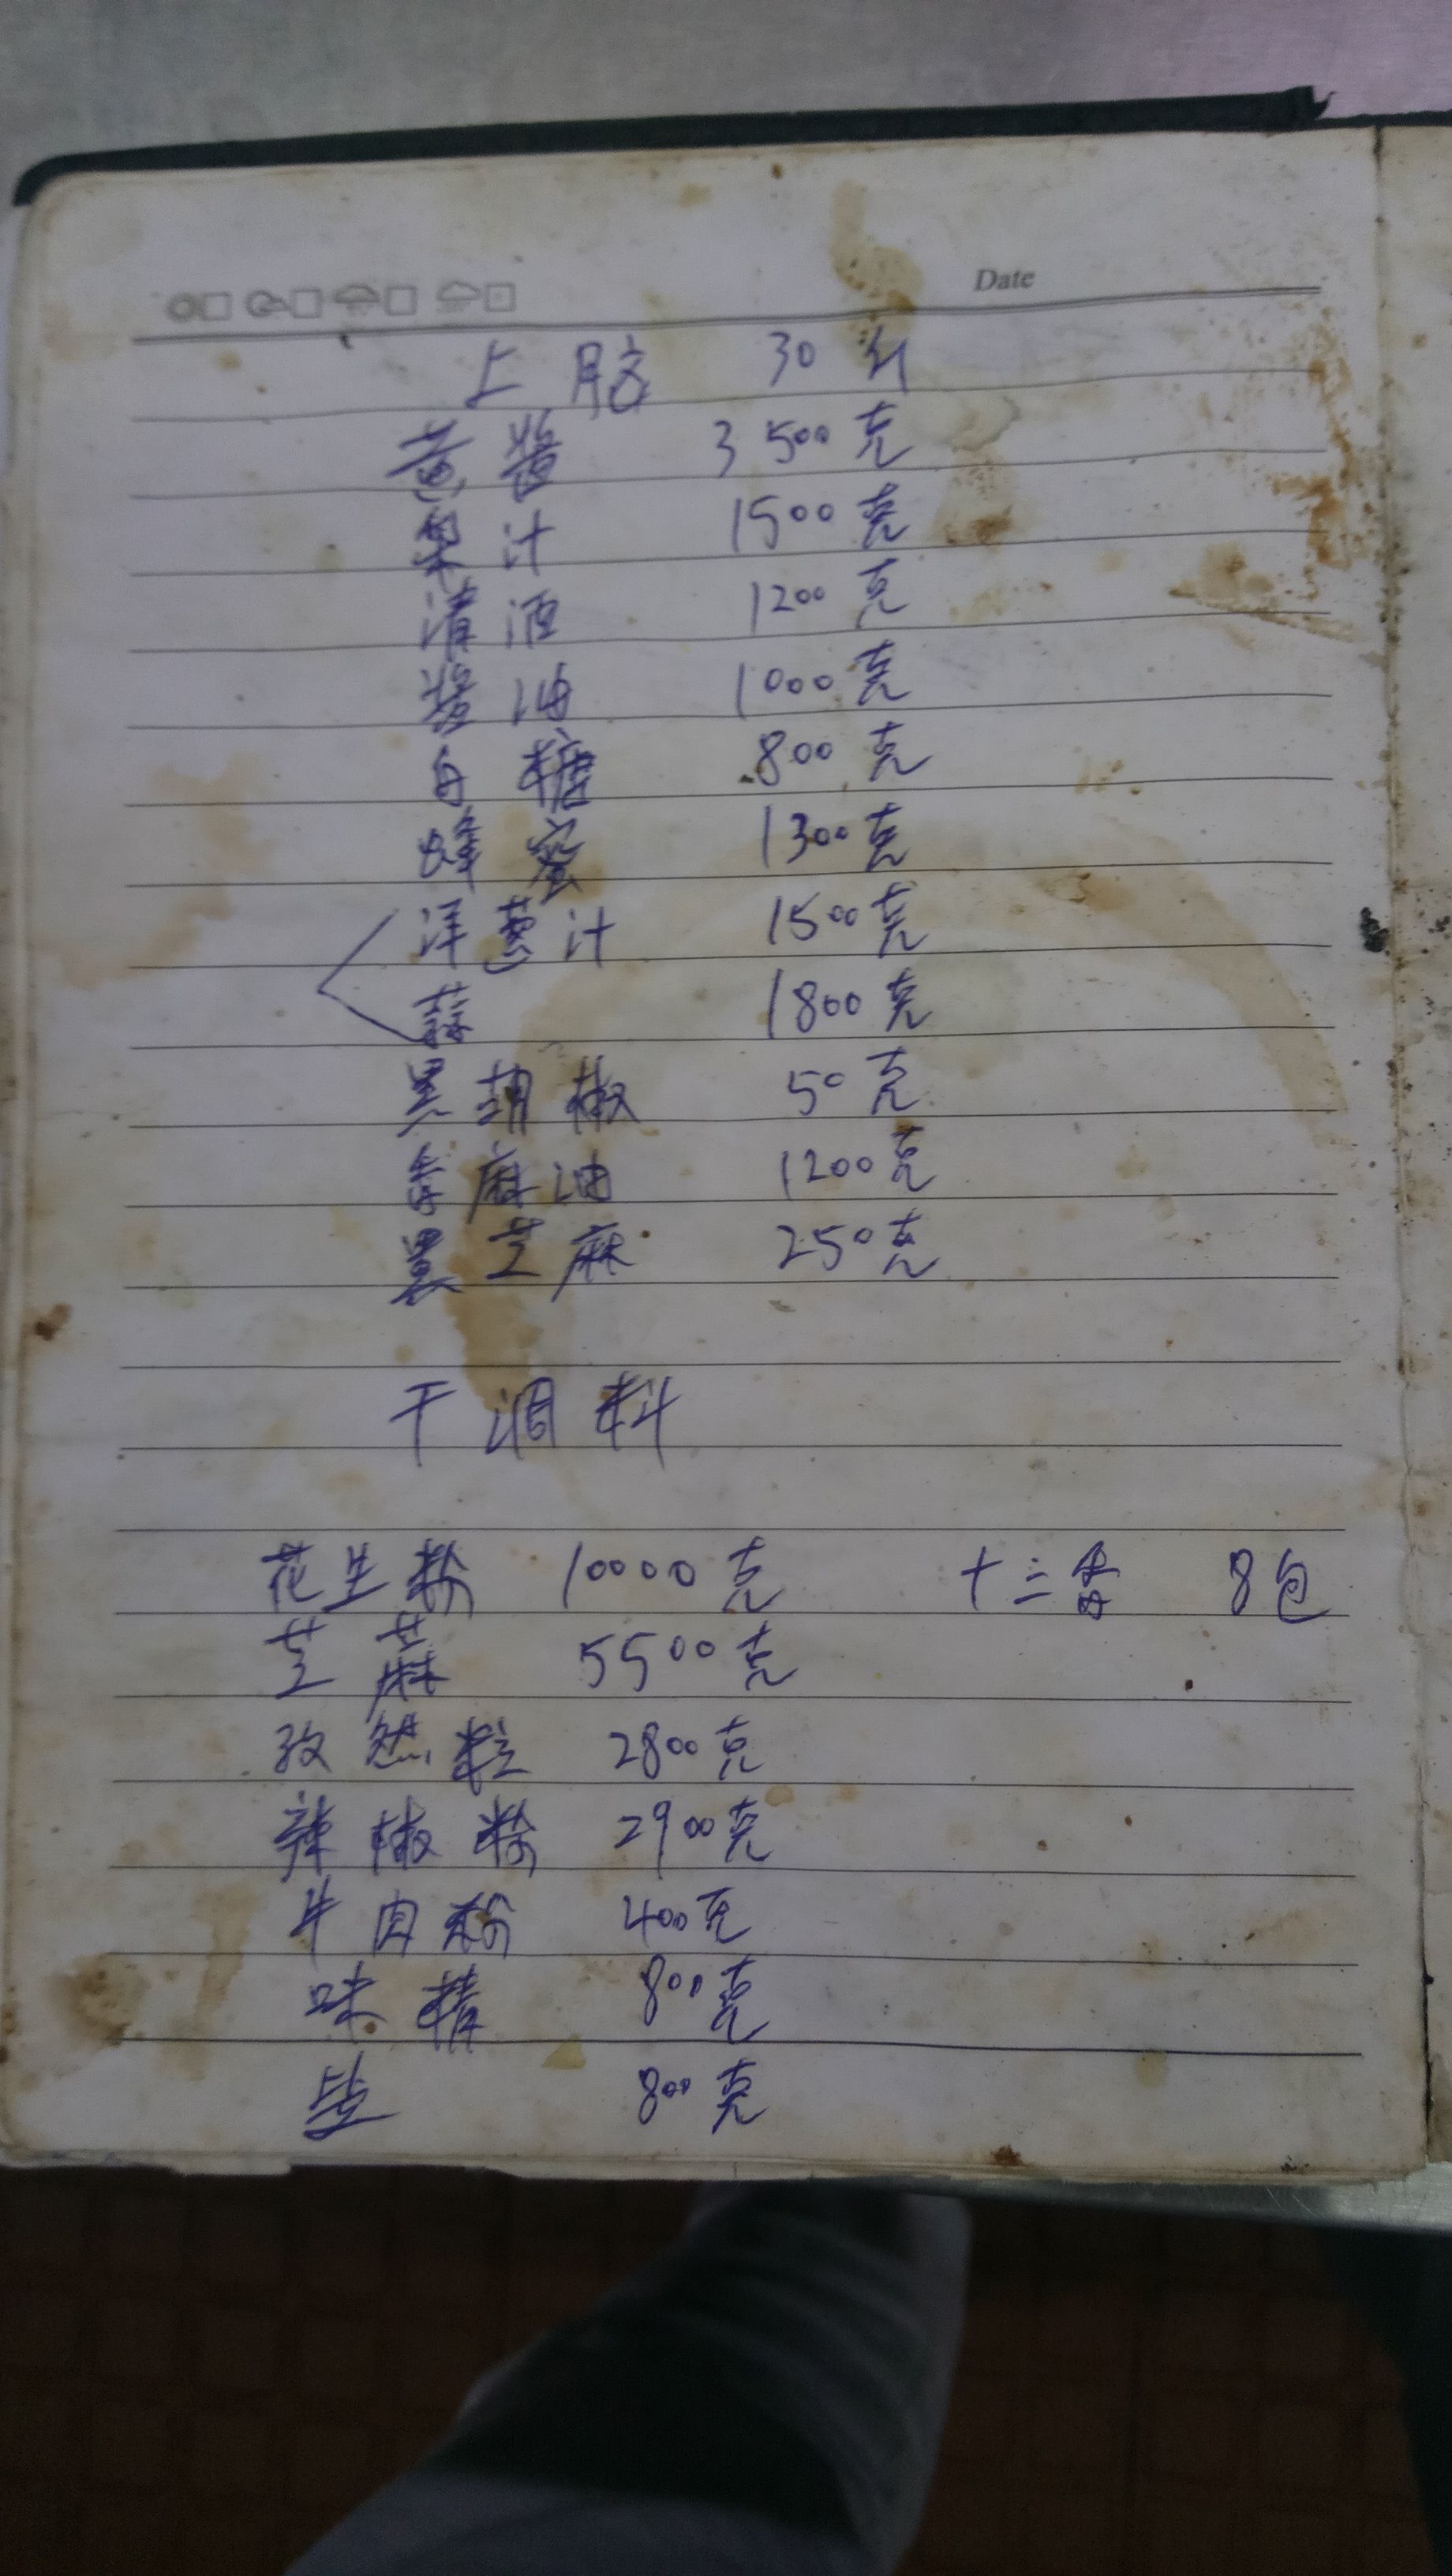 Date
上脑 30斤
葱酱 3500克
果汁 1500克
清酒 1200克
酱油 1000克
白糖 800克
蜂蜜 1300克
洋葱汁 1500克
蒜 1800克
黑胡椒 50克
香麻油 1200克
黑芝麻 250克
干调料
花生粉 10000克 十三香 8包
芝麻 5500克
孜然粒 2800克
辣椒粉 2900克
牛肉粉 400克
味精 800克
盐 800克